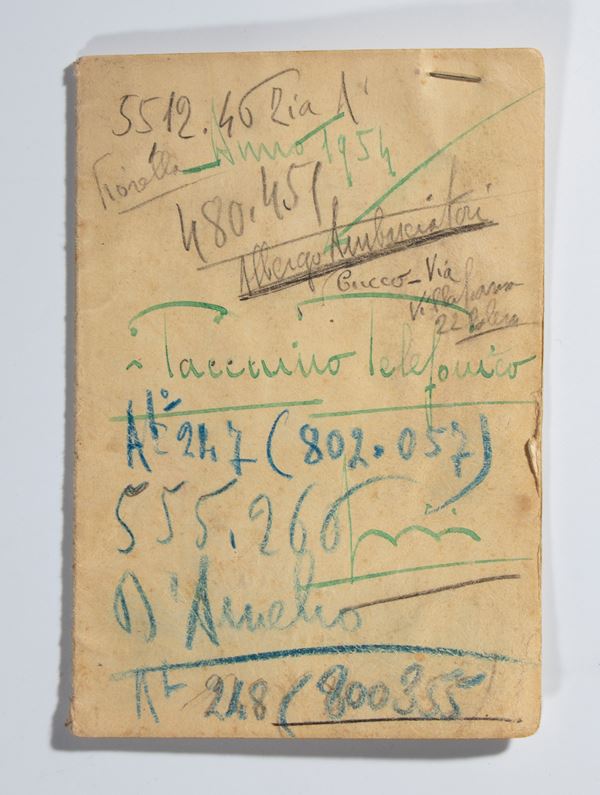 5512.46 Zia A'
Anno 1954
Fiorella
480.451
Albergo Ambasciatori
Cucco - Via
Villafranca
22
Taccuino Telefonico
At° 247 (802.057)
555.266
D'Amelio
At 248 (800355